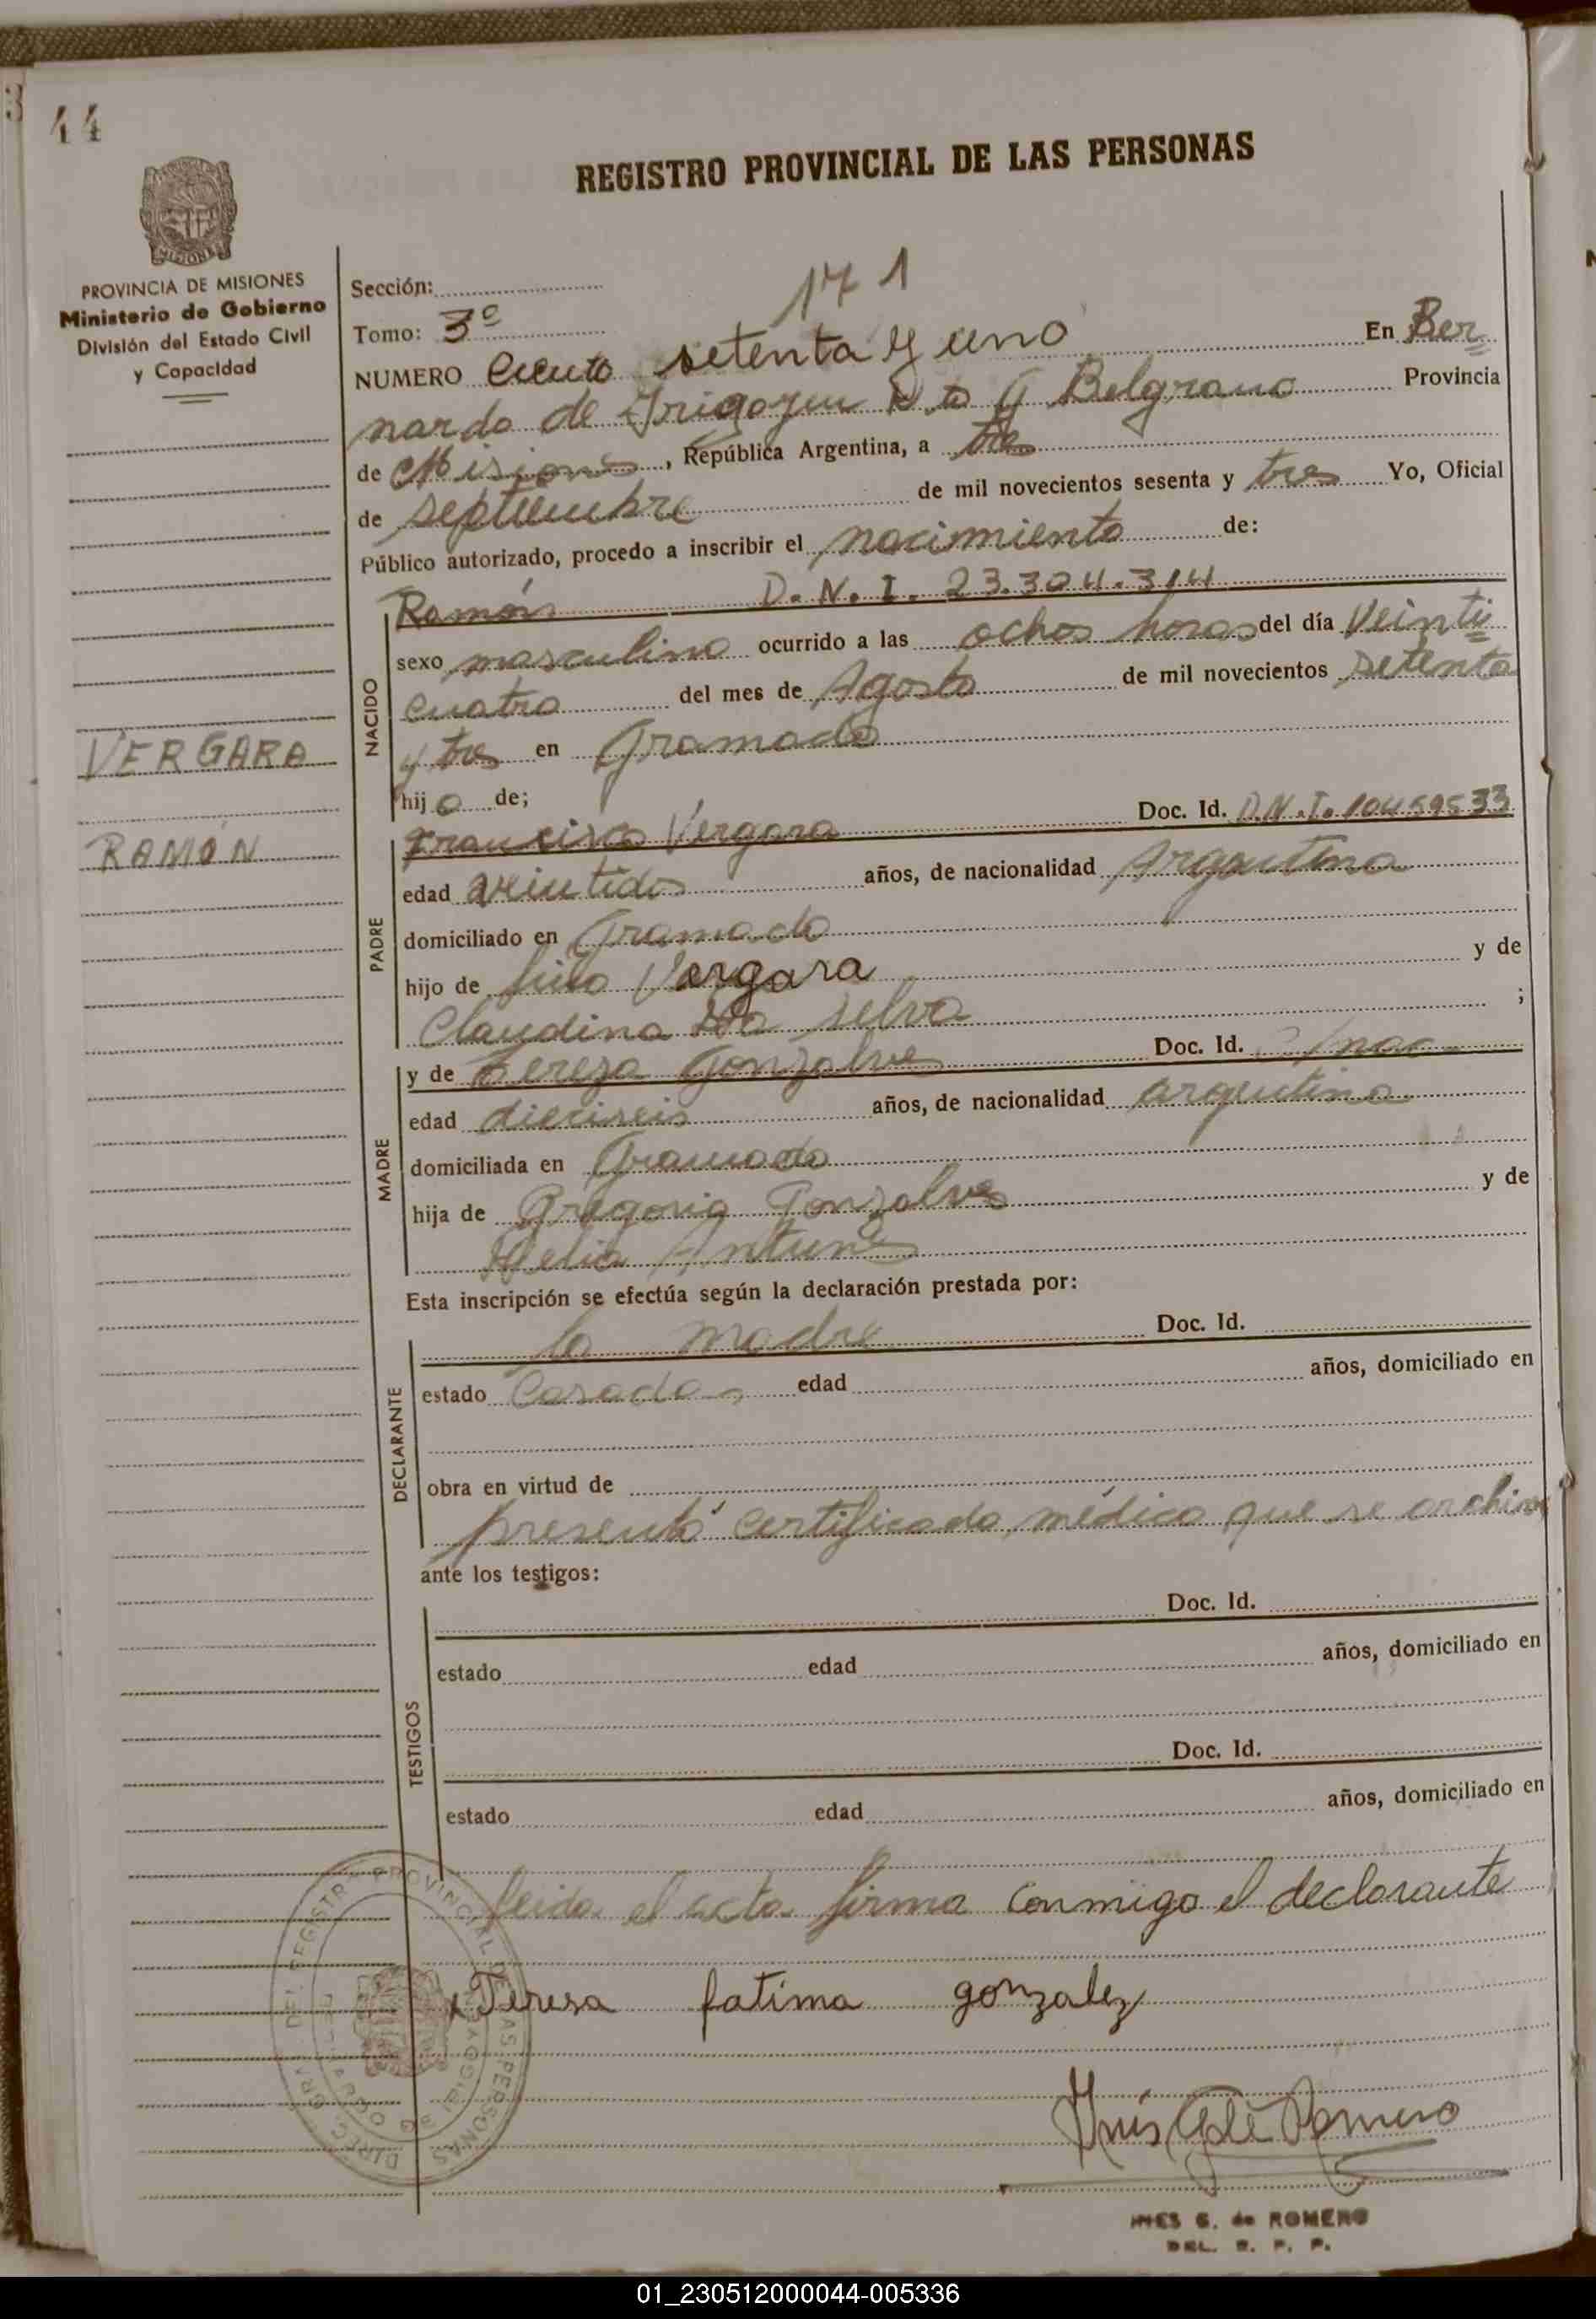 44
REGISTRO PROVINCIAL DE LAS PERSONAS
MISIONES
PROVINCIA DE MISIONES
Ministerio de Gobierno
División del Estado Civil
y Capacidad
VERGARA
RAMÓN
171
Sección:
Tomo: 3º
NUMERO Ciento setenta y uno En Ber
nardo de Irigoyen Dto G Belgrano Provincia
de Misiones, República Argentina, a tres
de septiembre de mil novecientos sesenta y tres Yo, Oficial
Público autorizado, procedo a inscribir el nacimiento de:
NACIDO
Ramón D.N.I. 23.304.314
sexo masculino ocurrido a las ochos horas del día Veinti
cuatro del mes de Agosto de mil novecientos setenta
y tres en Gramado
hijo de;
PADRE
Francisco Vergara Doc. Id. D.N.I. 10459533
edad veintidos años, de nacionalidad Argentina
domiciliado en Gramado
hijo de Vergara y de
Claudina Da Selva ;
MADRE
y de Tereza Gonzalves Doc. Id.
edad dieciseis años, de nacionalidad argentina
domiciliada en Gramado
hija de Gregorio Gonzalves y de
Antunes
Esta inscripción se efectúa según la declaración prestada por:
DECLARANTE
la madre Doc. Id.
estado Casada edad años, domiciliado en
obra en virtud de
presentó certificado médico que se archiva
ante los testigos:
TESTIGOS
Doc. Id.
estado edad años, domiciliado en
Doc. Id.
estado edad años, domiciliado en
leida el acta firma conmigo el declarante
x Teresa fatima gonzalez
Inés G de Romero
INES G. de ROMERO
DEL. R. P. P.
REGISTRO PROVINCIAL DE LAS PERSONAS
01_230512000044-005336